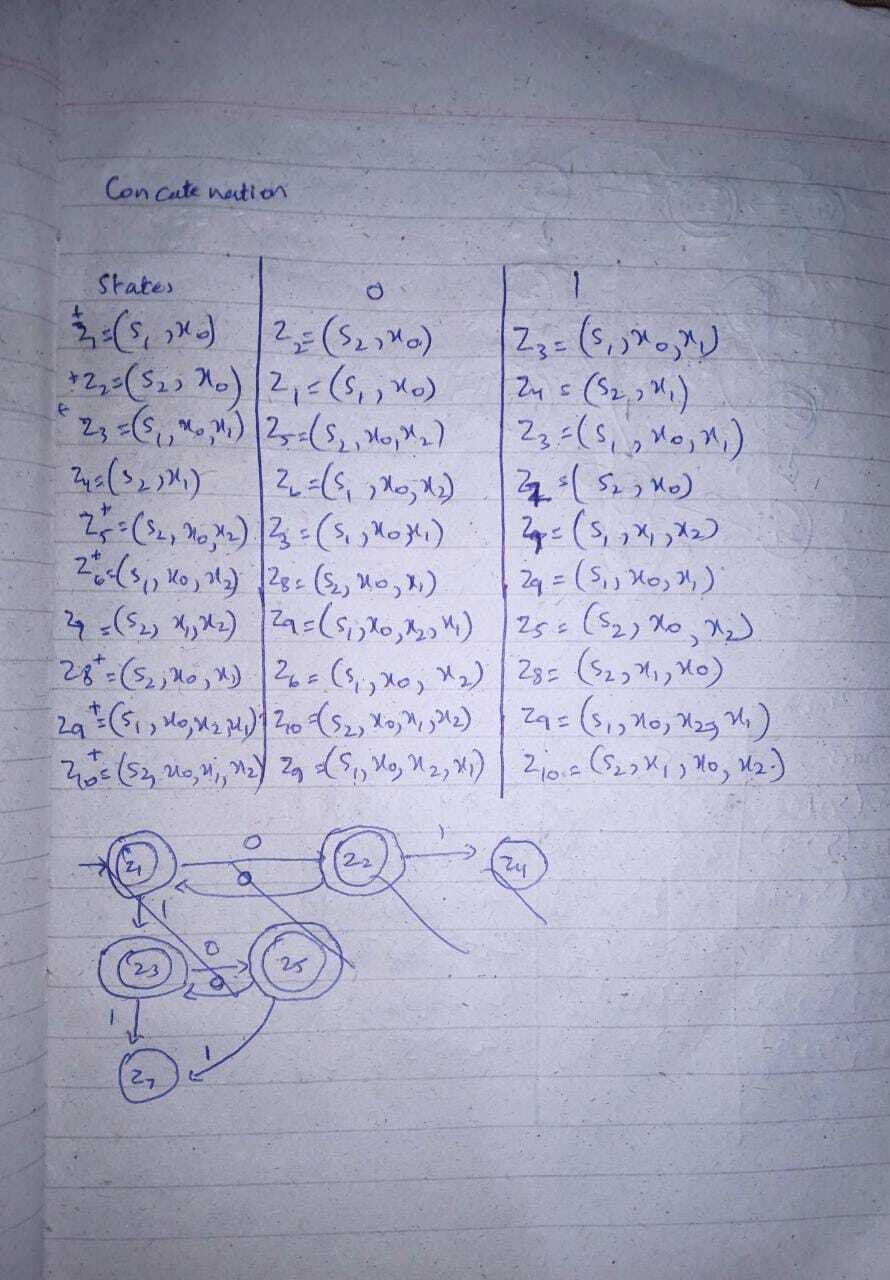 Concatenation
States 0 1
+Z1=(S1,x0) Z2=(S2,x0) Z3=(S1,x0,x1)
+Z2=(S2,x0) Z1=(S1,x0) Z4=(S2,x1)
+Z3=(S1,x0,x1) Z5=(S2,x0,x2) Z3=(S1,x0,x1)
Z4=(S2,x1) Z6=(S1,x0,x2) Z2=(S2,x0)
Z5+=(S2,x0,x2) Z3=(S1,x0,x1) Z7=(S1,x1,x2)
Z6+=(S1,x0,x2) Z8=(S2,x0,x1) Z9=(S1,x0,x1)
Z7=(S2,x1,x2) Z9=(S1,x0,x2,x1) Z5=(S2,x0,x2)
Z8+=(S2,x0,x1) Z6=(S1,x0,x2) Z8=(S2,x1,x0)
Z9+=(S1,x0,x2,x1) Z10=(S2,x0,x1,x2) Z9=(S1,x0,x2,x1)
Z10+=(S2,x0,x1,x2) Z9=(S1,x0,x2,x1) Z10=(S2,x1,x0,x2)
0 1
Z1 Z2 Z4
0
1
0
Z3 Z5
0
1
1
Z7